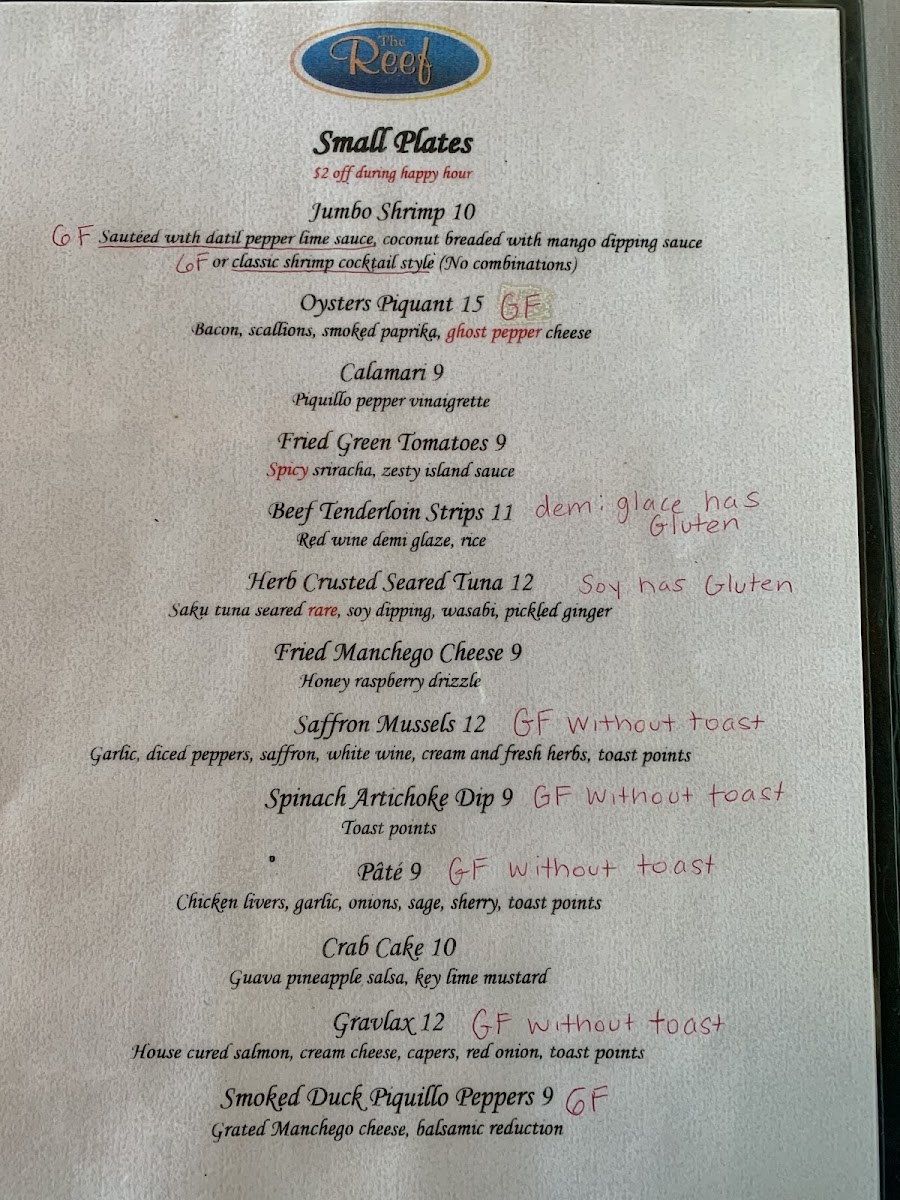 The
Reef
Small Plates
$2 off during happy hour
Jumbo Shrimp 10
GF Sautéed with datil pepper lime sauce, coconut breaded with mango dipping sauce
GF or classic shrimp cocktail style (No combinations)
Oysters Piquant 15 GF
Bacon, scallions, smoked paprika, ghost pepper cheese
Calamari 9
Piquillo pepper vinaigrette
Fried Green Tomatoes 9
Spicy sriracha, zesty island sauce
Beef Tenderloin Strips 11 demi glace has
Gluten
Red wine demi glaze, rice
Herb Crusted Seared Tuna 12 Soy has Gluten
Saku tuna seared rare, soy dipping, wasabi, pickled ginger
Fried Manchego Cheese 9
Honey raspberry drizzle
Saffron Mussels 12 GF without toast
Garlic, diced peppers, saffron, white wine, cream and fresh herbs, toast points
Spinach Artichoke Dip 9 GF without toast
Toast points
Pâté 9 GF without toast
Chicken livers, garlic, onions, sage, sherry, toast points
Crab Cake 10
Guava pineapple salsa, key lime mustard
Gravlax 12 GF without toast
House cured salmon, cream cheese, capers, red onion, toast points
Smoked Duck Piquillo Peppers 9 GF
Grated Manchego cheese, balsamic reduction